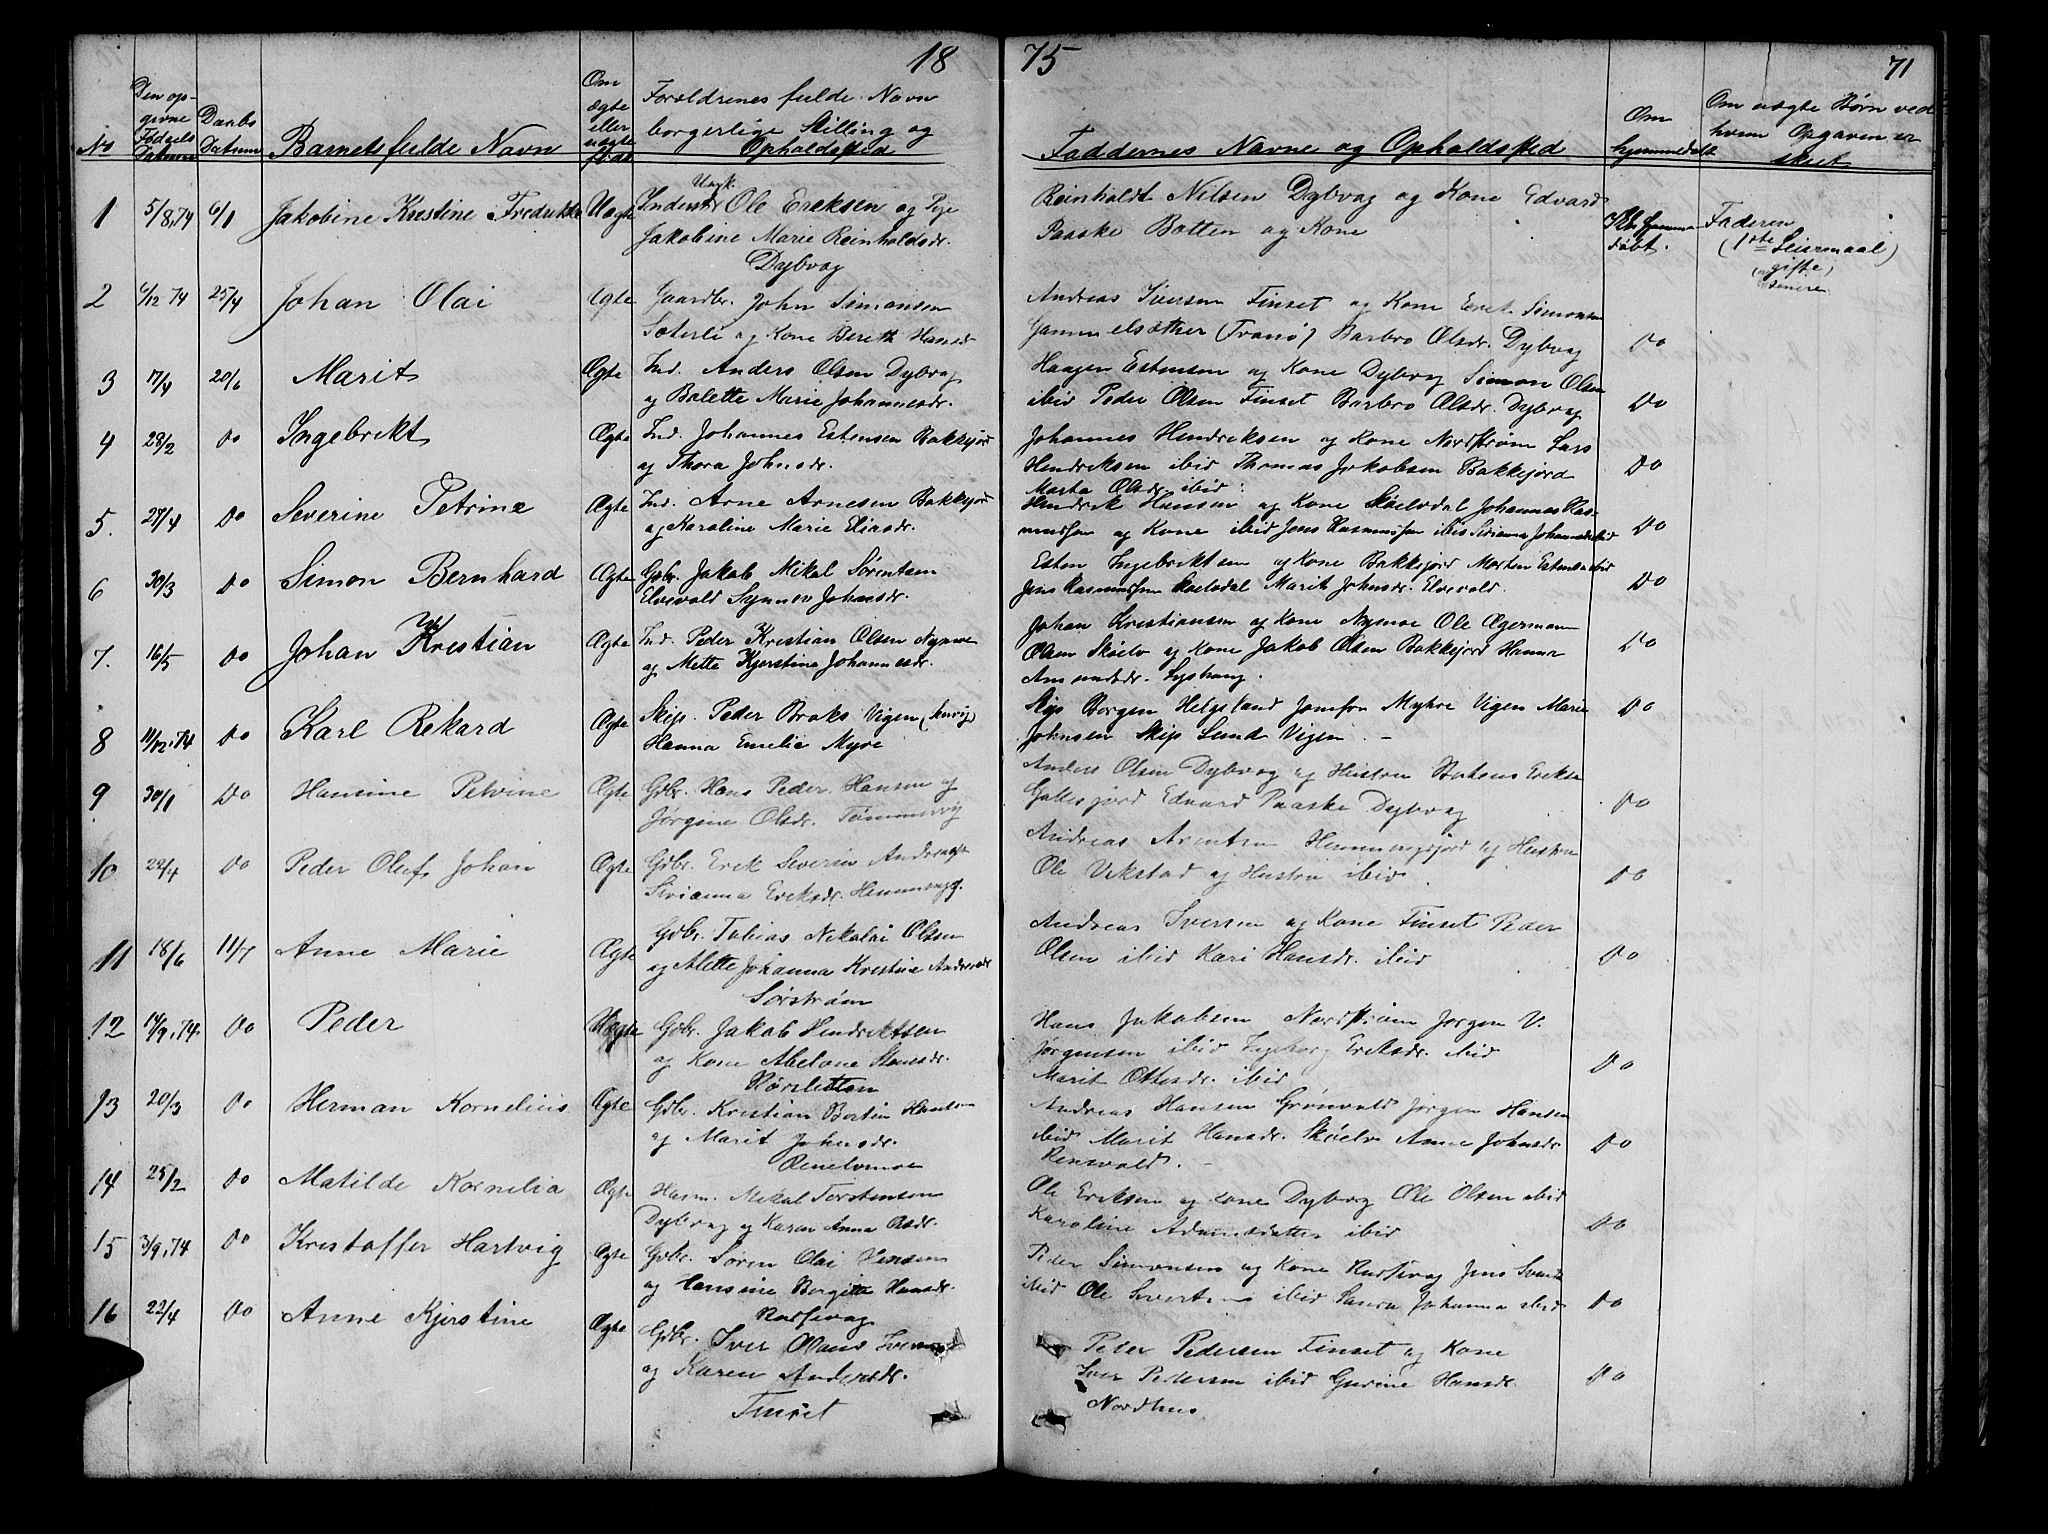 18 75 71
No
Den opgivne Fødsels Datum
Daabs Datum
Barnets fulde Navn
Om ægte eller uægte født
Forældrenes fulde Navn
borgerlige Stilling og
Opholdssted
Faddernes Navne og Opholdssted
Om hjemmedøbt
Om uægte Børn ved
hvem Opgaven er
skeet
1 5/8,74 6/1 Jakobine Kristine Fredrikke Uægte Inderst Ungk. Ole Eriksen og Pige
Jakobine Marie Reinholdsdr.
Dybvag
Reinholdt Nilsen Dybvag og Kone Edvard
Paaske Botten og Kone
døbt.
Faderen
(1ste Leiermaal)
gifte
senere
2 6/12 74 25/4 Johan Olai Ægte Gaardbr. John Simonsen
Sæterli og Kone Bereth Hansdr
Andreas Iversen Finset og Kone Erik Simonsen
Gammelsæther (Tranø) Barbro Olsdr. Dybvag
Do
3 17/4 20/6 Marit Ægte Ind. Anders Olsen Dybvag
og Balette Marie Johannesdr.
Haagen Estensen og Kone Dybvag Simon Olsen
ibid Peder Olsen Finset Barbro Olsdr. Dybvag
Do
4 28/2 Do Ingebrikt Ægte Ind. Johannes Estensen Bakkejord
og Thora Johnsdr.
Johannes Hendriksen og Kone Nordstrøm Lars
Hendriksen ibid Thomas Jakobsen Bakkejord
Marta Olsdr. ibid
Do
5. 27/4 Do Severine Petrine Ægte Ind. Arne Arnesen Bakkejord
og Karoline Marie Eliasdr.
Hendrik Hansen og Kone Skøelvdal Johannes Ras-
mussen og Kone ibid Jens Rasmussen ibid
Do
6 30/3 Do Simon Bernhard Ægte Gdbr. Jakob Mikal Sørentsen
Elvevold Synnev Johnsdr.
Esten Ingebriktsen og Kone Bakkejord Morten Estensen ibid
Jens Rasmussen Skøelvdal Marit Johnsdr. Elvevold.
Do
7. 16/5 Do Johan Kristian Ægte Ind. Peder Kristian Olsen Nymoe
og Mette Kjerstine Johannesdr.
Johan Kristiansen og Kone Nymoe Ole Agerman
Olsen Skøelv og Kone Jakob Olsen Bakkejord Hanna
Amundsdr.
Do
8 11/12.74 Do Karl Rikard Ægte Skip. Peder Broks Vigen
Hanna Emelie Myre
Skip Borgen Helgeland Jomfru Myhre Vigen Marie
Johnsen Skip Lund Vigen. -
Do
9 30/1 Do Hansine Petrine Ægte Gdbr. Hans Peder Hansen og
Jørgine Olsdr. Tømmervig
Anders Olsen Dybvag og Hustru
Edvard Paaske Dybvag
Do
10 22/4 Do Peder Oluf Johan Ægte Gdbr. Erik Severin
Sirianna Eriksdr.
Andreas Arentsen Hemmingsjord og Hustru
Ole Vikstad og Hustru ibid
Do
11 18/6 11/7 Anne Marie Ægte Gdbr. Tobias Nikolai Olsen
og Alette Johanna Kristine Andersdr
Sørstrøm
Andreas Iversen og Kone Finset Peder
Olsen ibid Kari Hansdr. ibid
Do
12 14/9,74. Do Peder Uægte Gdbr. Jakob Hendriksen
og Kone Abelone
Rørsletten
Hans Jakobsen Nordstrøm Jørgen V.
Jørgensen ibid Ingeborg Eriksdr. ibid
Marit Ottesdr. ibid
Do
13 20/3 Do Herman Kornelius Ægte Gdbr. Kristian Bertin Hansen
og Marit Johnsdr.
Andreas Hansen Grønvold Jørgen Hansen
ibid Marit Hansdr. Skøelv Anne Johnsdr
Renvold. -
Do
14 25/2 Do Matilde Kornelia Ægte Husm. Mikal Torstensen
Dybvag og Karen Anna Olsdr.
Ole Eriksen og Kone Dybvag Ole Olsen ibid
Karoline Adamsdatter ibid
Do
15 3/9,74 Do Kristoffer Hartvig Ægte Gdbr. Søren Olai
og Hansine Bergitte Hansdr.
Peder Simonsen og Kone
ibid Ole ibid Johanna ibid
Do
16 22/4 Do Anne Kjerstine Ægte Gdbr. Iver Olaus
og Karen Andersdr.
Finset
Peter Pedersen Finset og Kone
Iver Pedersen ibid Gurine Hansdr.
Nordhus
Do